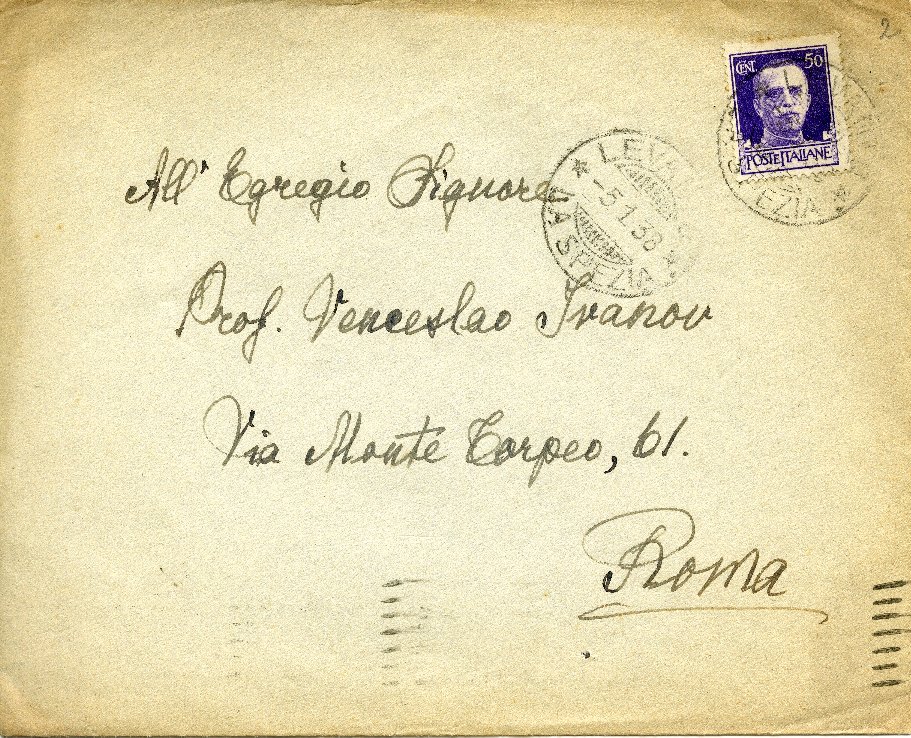 2
CENT. 50
POSTE ITALIANE
LEVA
-5.1.38
LA SPEZIA
EZIA
All' Egregio Signore
Prof. Venceslao Ivanov
Via Monte Tarpeo, 61.
Roma